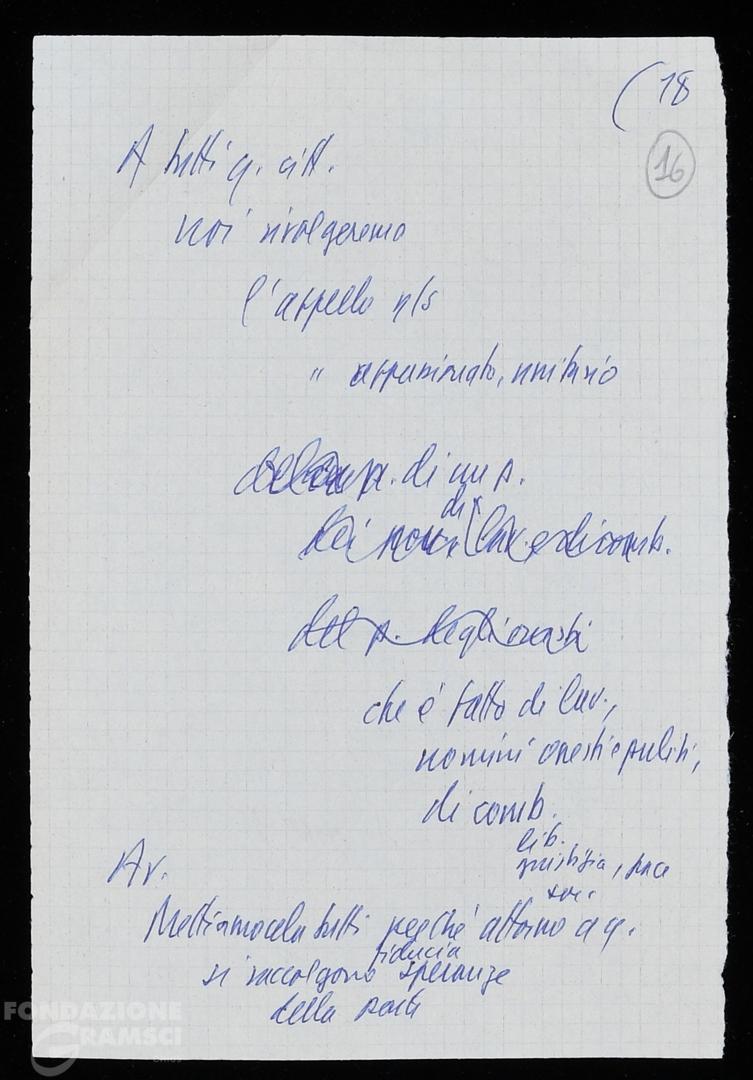 (18
16
A tutti q. citt.
noi rivolgeremo
l'appello n/s
" appassionato, unitario
di un p.
di
dei nom. lav. e di comb.
del p. degli onesti
che è fatto di lav.,
uomini onesti e puliti,
di comb.
lib.
giustizia, pace
soc.
Av.
Mettiamocela tutti perché attorno a q.
fiducia
si raccolgono speranze
della
FONDAZIONE
GRAMSCI